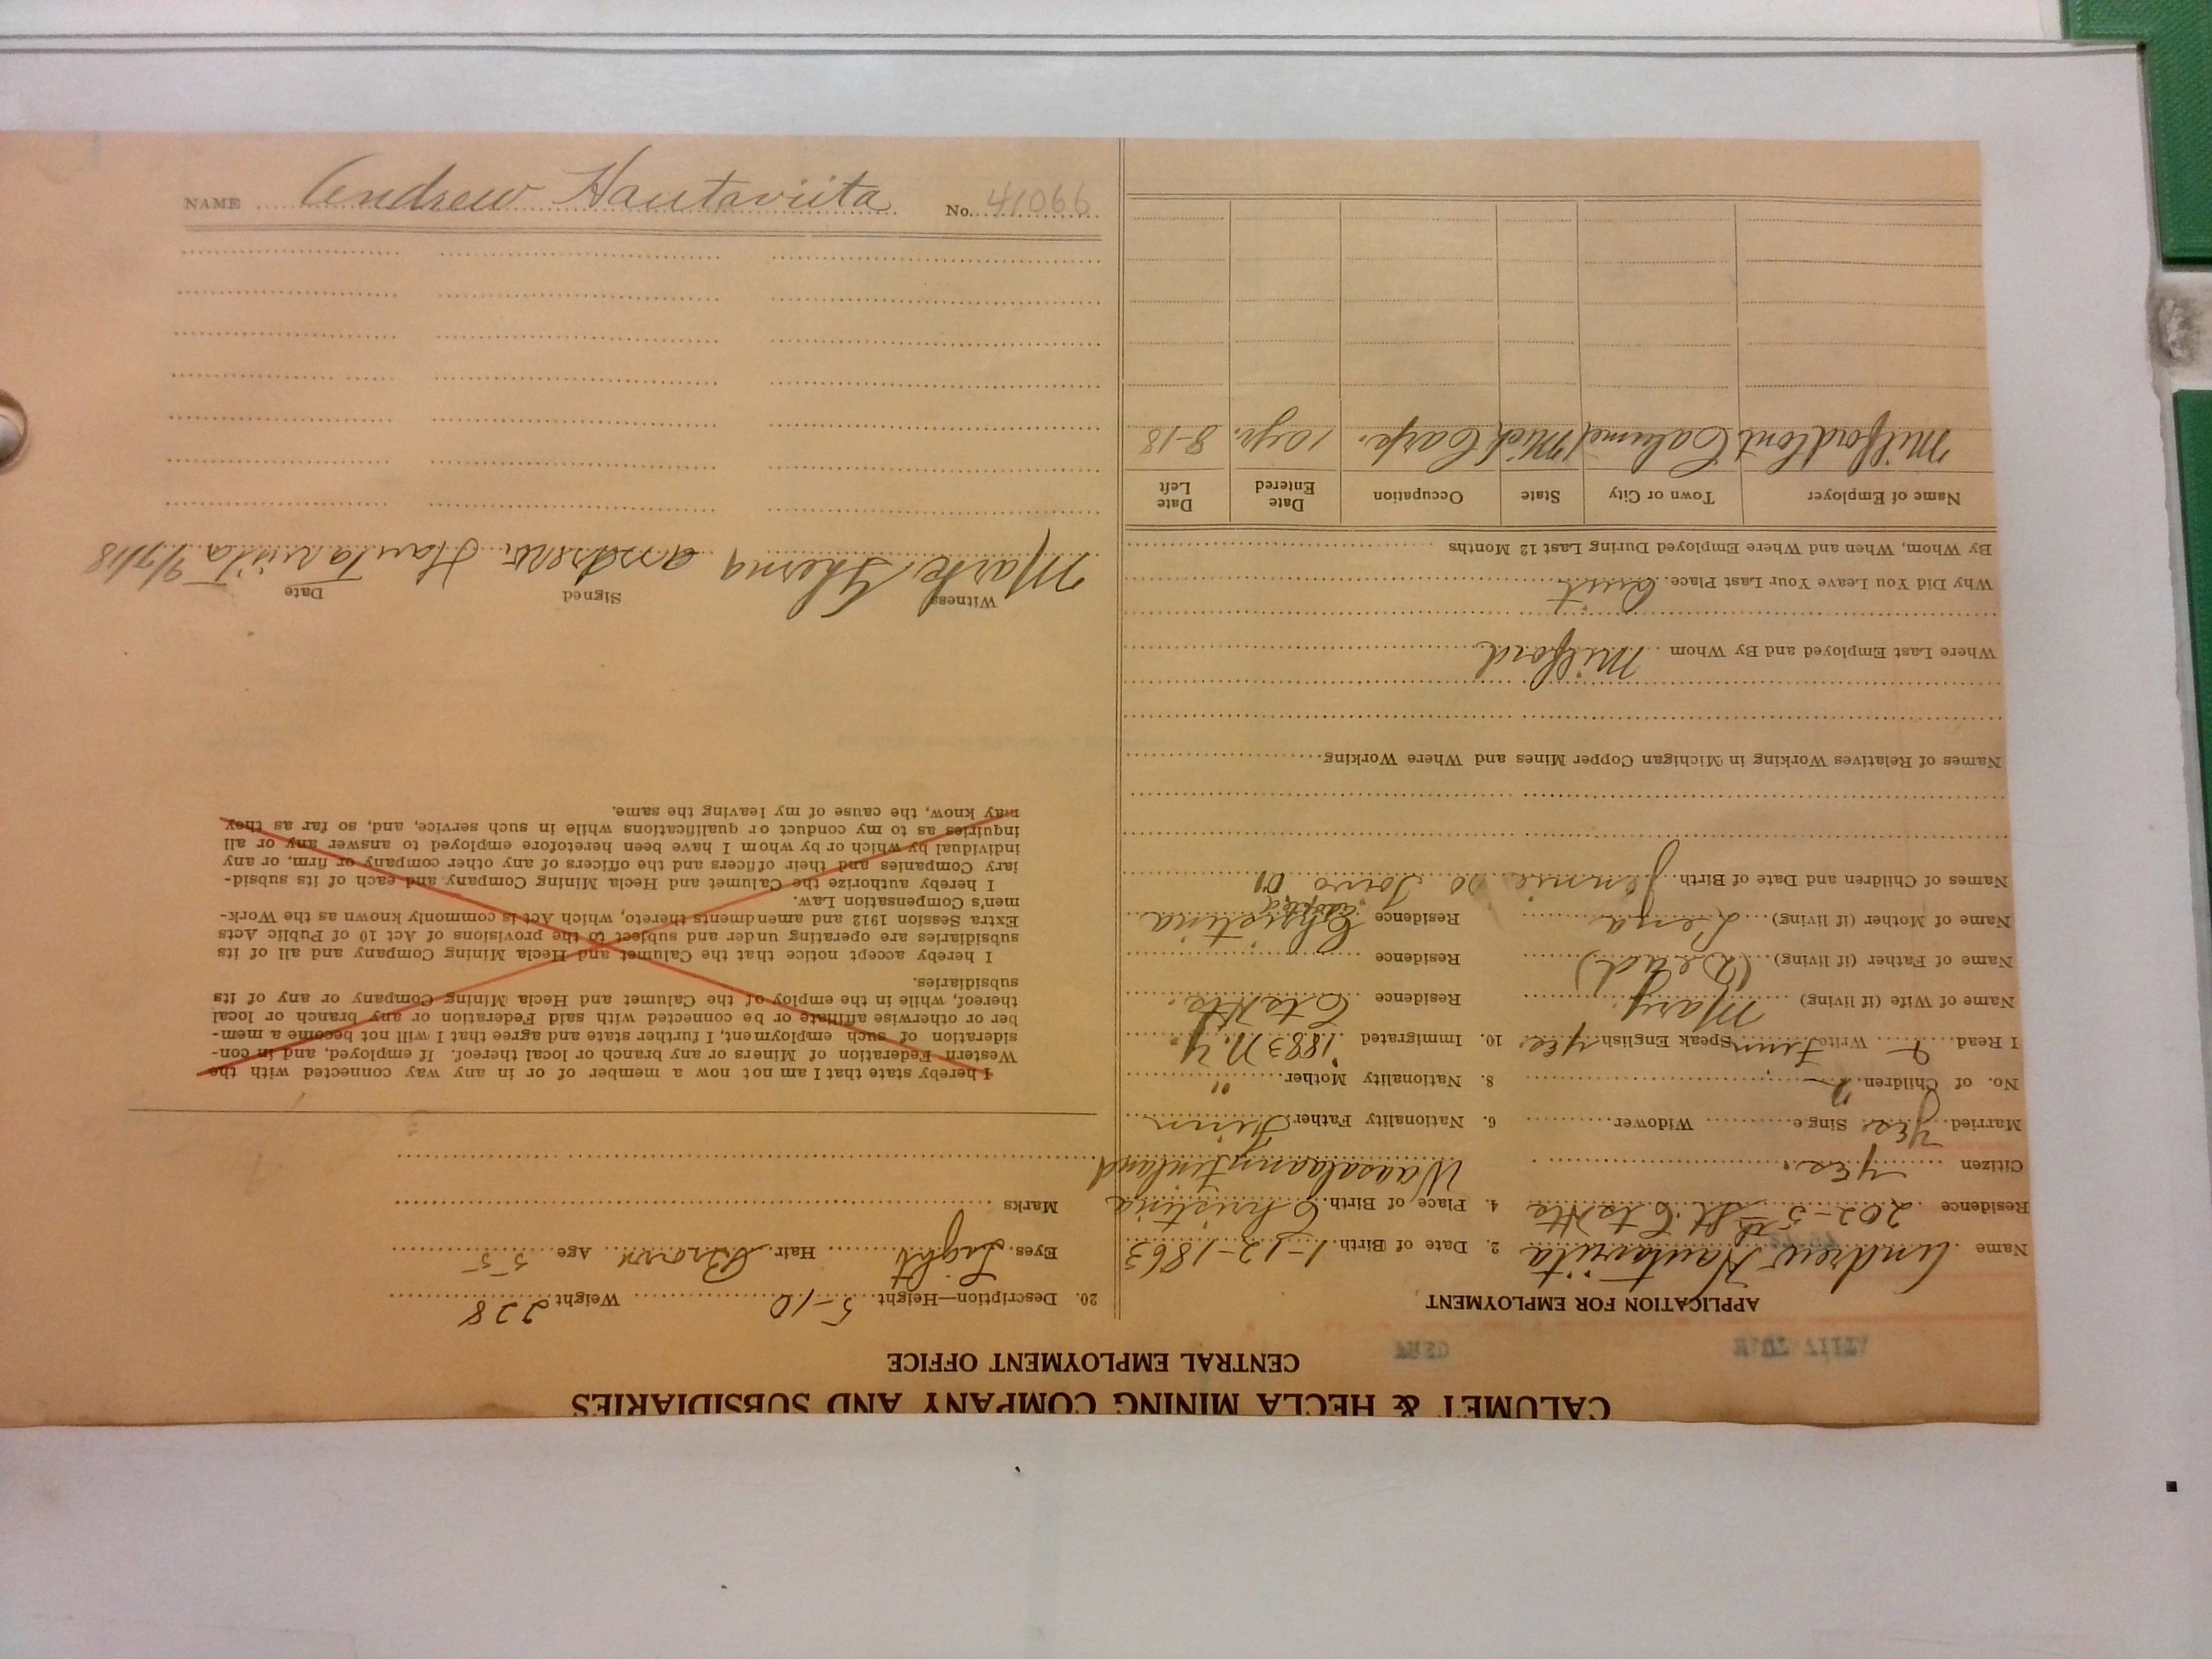 CALUMET & HECLA MINING COMPANY AND SUBSIDIARIES
CENTRAL EMPLOYMENT OFFICE
APPLICATION FOR EMPLOYMENT
Name Andrew Hautaviita 2. Date of Birth 1-12-1863
Residence 202-5th St. 4. Place of Birth Christina
Waasalaany Finland
Citizen yes.
Married yes Single Widower 6. Nationality Father Finn
No. of Children 2 8. Nationality Mother "
I Read Write Finn Speak English yes. 10. Immigrated 1883 N.Y.
Name of Wife (if living) Mary Residence
Name of Father (if living) (Dead) Residence
Name of Mother (if living) Residence Christina
Names of Children and Date of Birth Jennie Toivo 01 adopted
Names of Relatives Working in Michigan Copper Mines and Where Working
Where Last Employed and By Whom Milford
Why Did You Leave Your Last Place Quit
By Whom, When and Where Employed During Last 12 Months
Name of Employer Town or City State Occupation Date Entered Date Left
Milford Cont Calumet Mich Carp. 10 yr. 8-18
20. Description—Height 5-10 Weight 228
Eyes Light Hair Brown Age 55
Marks
I hereby state that I am not now a member of or in any way connected with the
Western Federation of Miners or any branch or local thereof. If employed, and in con-
sideration of such employment, I further state and agree that I will not become a mem-
ber or otherwise affiliate or be connected with said Federation or any branch or local
thereof, while in the employ of the Calumet and Hecla Mining Company or any of its
subsidiaries.
I hereby accept notice that the Calumet and Hecla Mining Company and all of its
subsidiaries are operating under and subject to the provisions of Act 10 of Public Acts
Extra Session 1912 and amendments thereto, which Act is commonly known as the Work-
men's Compensation Law.
I hereby authorize the Calumet and Hecla Mining Company and each of its subsid-
iary Companies and their officers and the officers of any other company or firm, or any
individual by which or by whom I have been heretofore employed to answer any or all
inquiries as to my conduct or qualifications while in such service, and, so far as they
may know, the cause of my leaving the same.
Witness Signed Date
Mark Andrew Hautaviita 9/7/18
NAME Andrew Hautaviita No. 41066